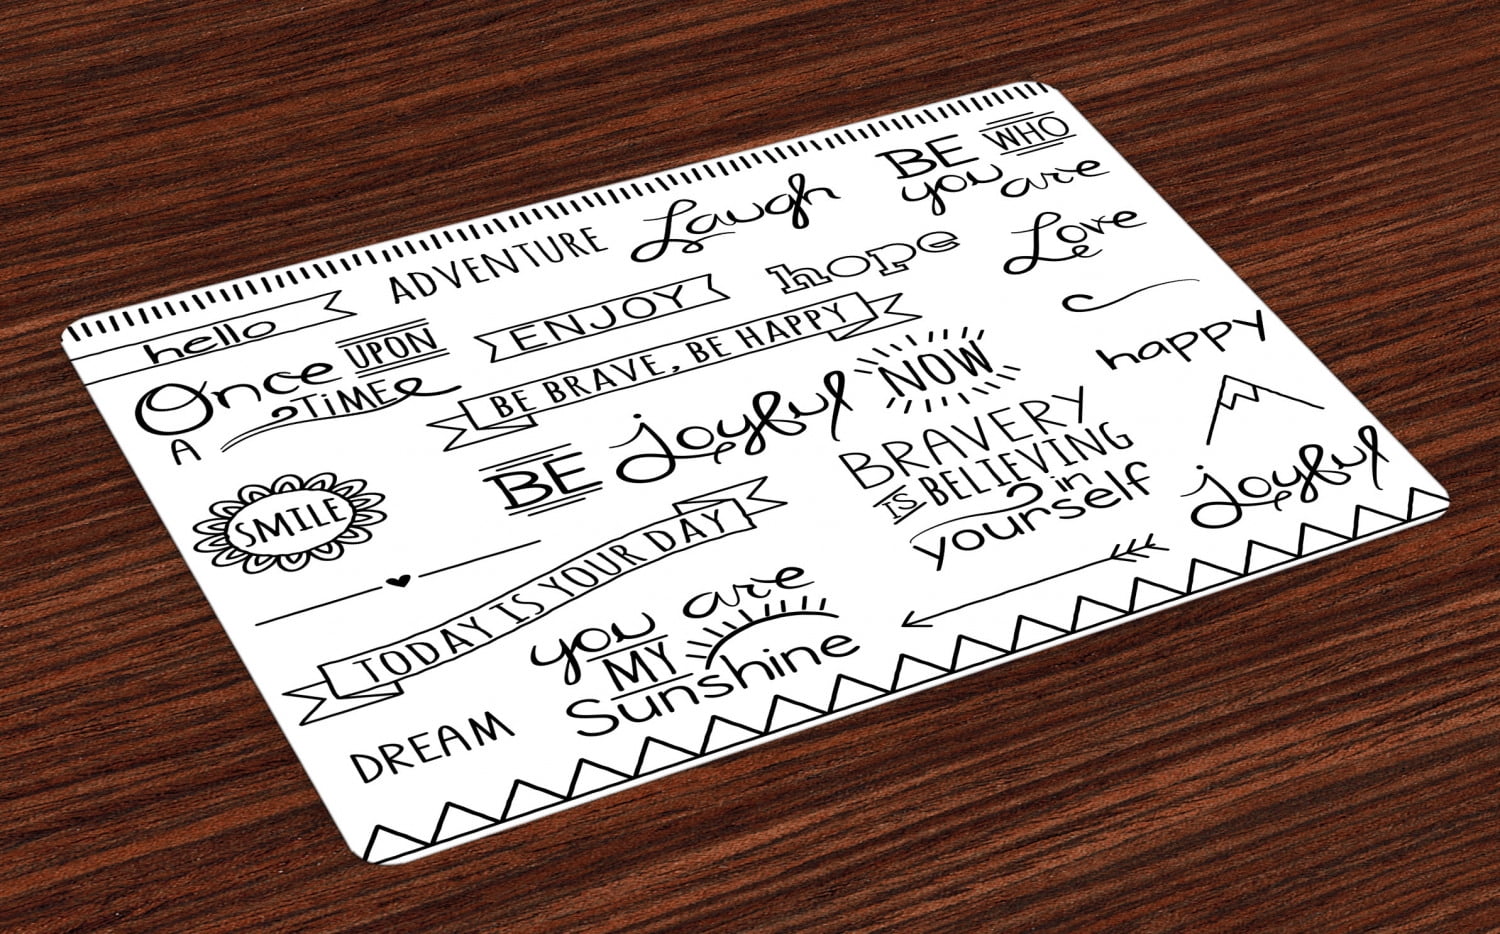 hello
ADVENTURE
Laugh
BE WHO
you are
Once UPON
A TiME
ENJOY
hope
Love
BE BRAVE, BE HAPPY
happy
BE Joyful NOW
SMILE
BRAVERY
IS BELIEVING
in
yourself
Joyful
TODAY IS YOUR DAY
you are
MY
Sunshine
DREAM